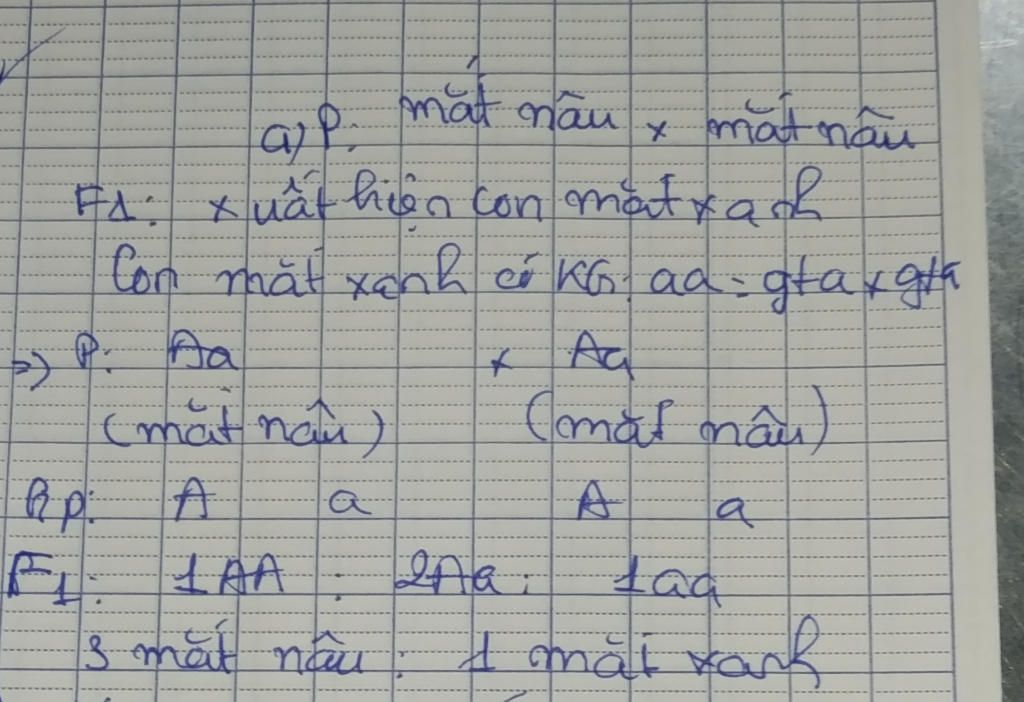 a) P: mắt nâu x mắt nâu
F1: xuất hiện con mắt xanh
Con mắt xanh có KG: aa = gta x gta
=> P: Aa x Aa
(mắt nâu) (mắt nâu)
Gp: A a A a
F1: 1AA : 2Aa : 1aa
3 mắt nâu : 1 mắt xanh